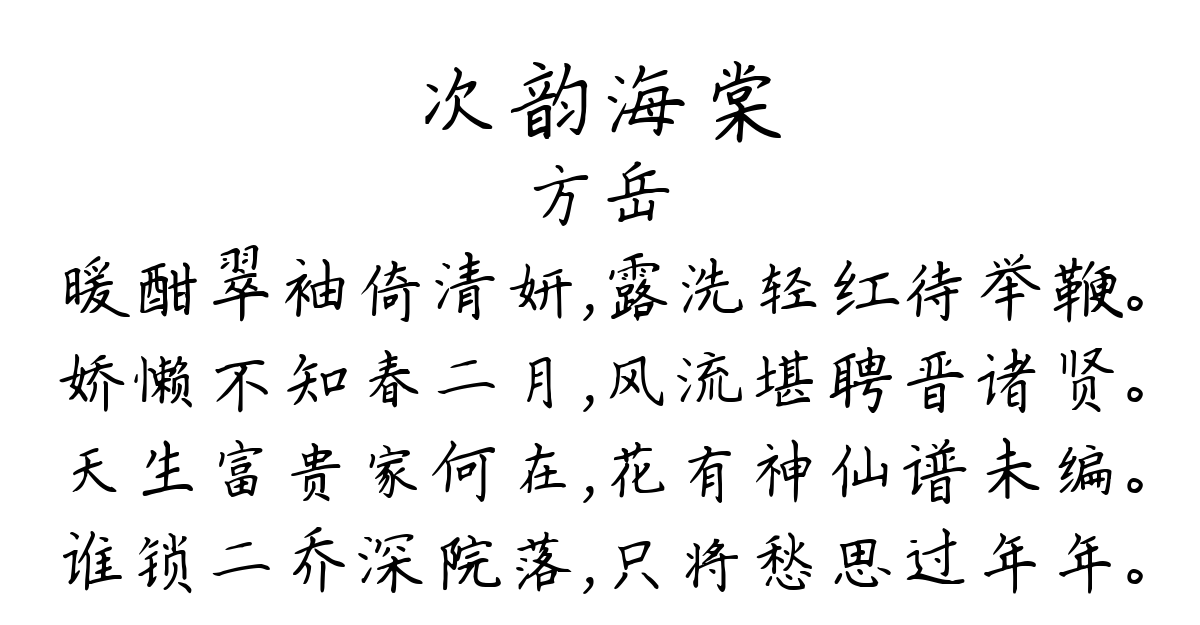 次韵海棠
方岳
暖酣翠袖倚清妍,露洗轻红待举鞭。
娇懒不知春二月,风流堪聘晋诸贤。
天生富贵家何在,花有神仙谱未编。
谁锁二乔深院落,只将愁思过年年。